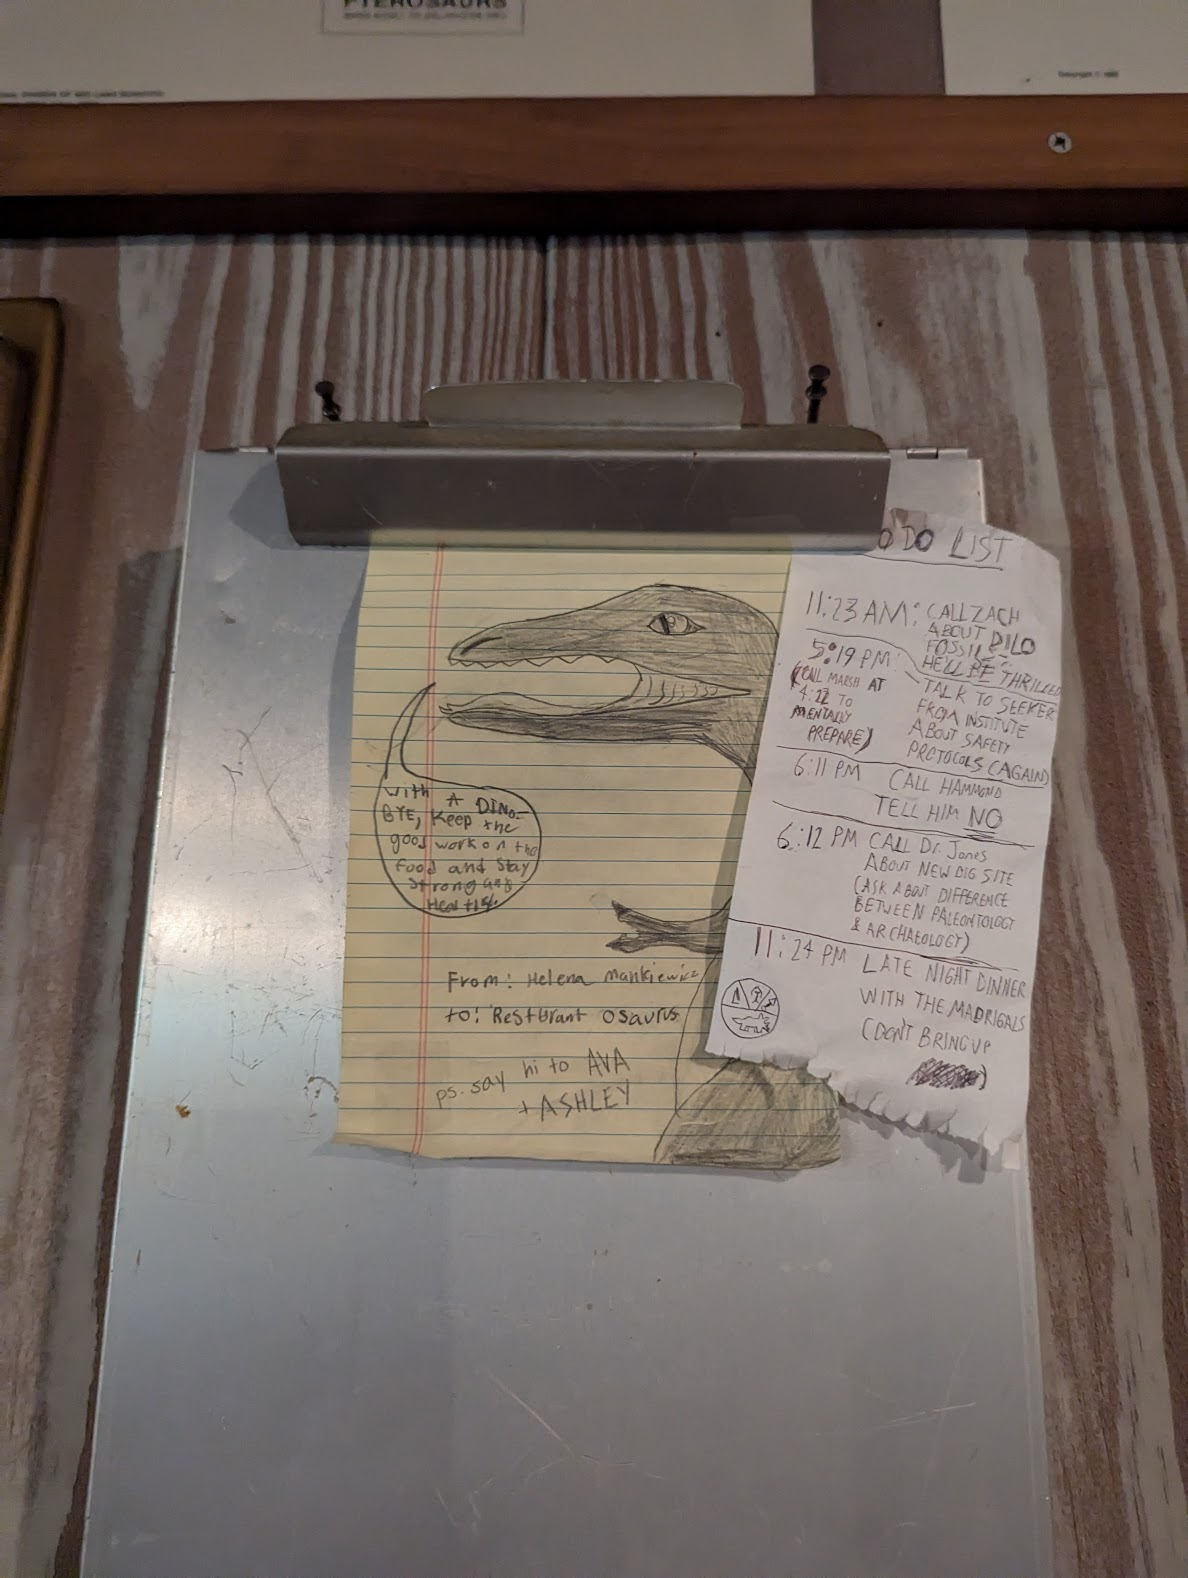 PTEROSAURS
With A DINO-
BYE, Keep the
good work on the
food and stay
strong and
From: Helena Mankiewicz
to: Resturant osaurus
ps. say hi to AVA
+ ASHLEY
O DO LIST
11:23 AM: CALL ZACH
ABOUT DILO
FOSSIL-
HE'LL BE THRILLED
5:19 PM:
(CALL MARSH AT
TO
MENTALLY
PREPARE)
TALK TO SEEKER
FROM INSTITUTE
ABOUT SAFETY
PROTOCOLS (AGAIN)
6:11 PM CALL HAMMOND
TELL HIM NO
6:12 PM CALL Dr. Jones
ABOUT NEW DIG SITE
(ASK ABOUT DIFFERENCE
BETWEEN PALEONTOLOGY
& ARCHAEOLOGY)
11:24 PM LATE NIGHT DINNER
WITH THE MADRIGALS
(DON'T BRING UP